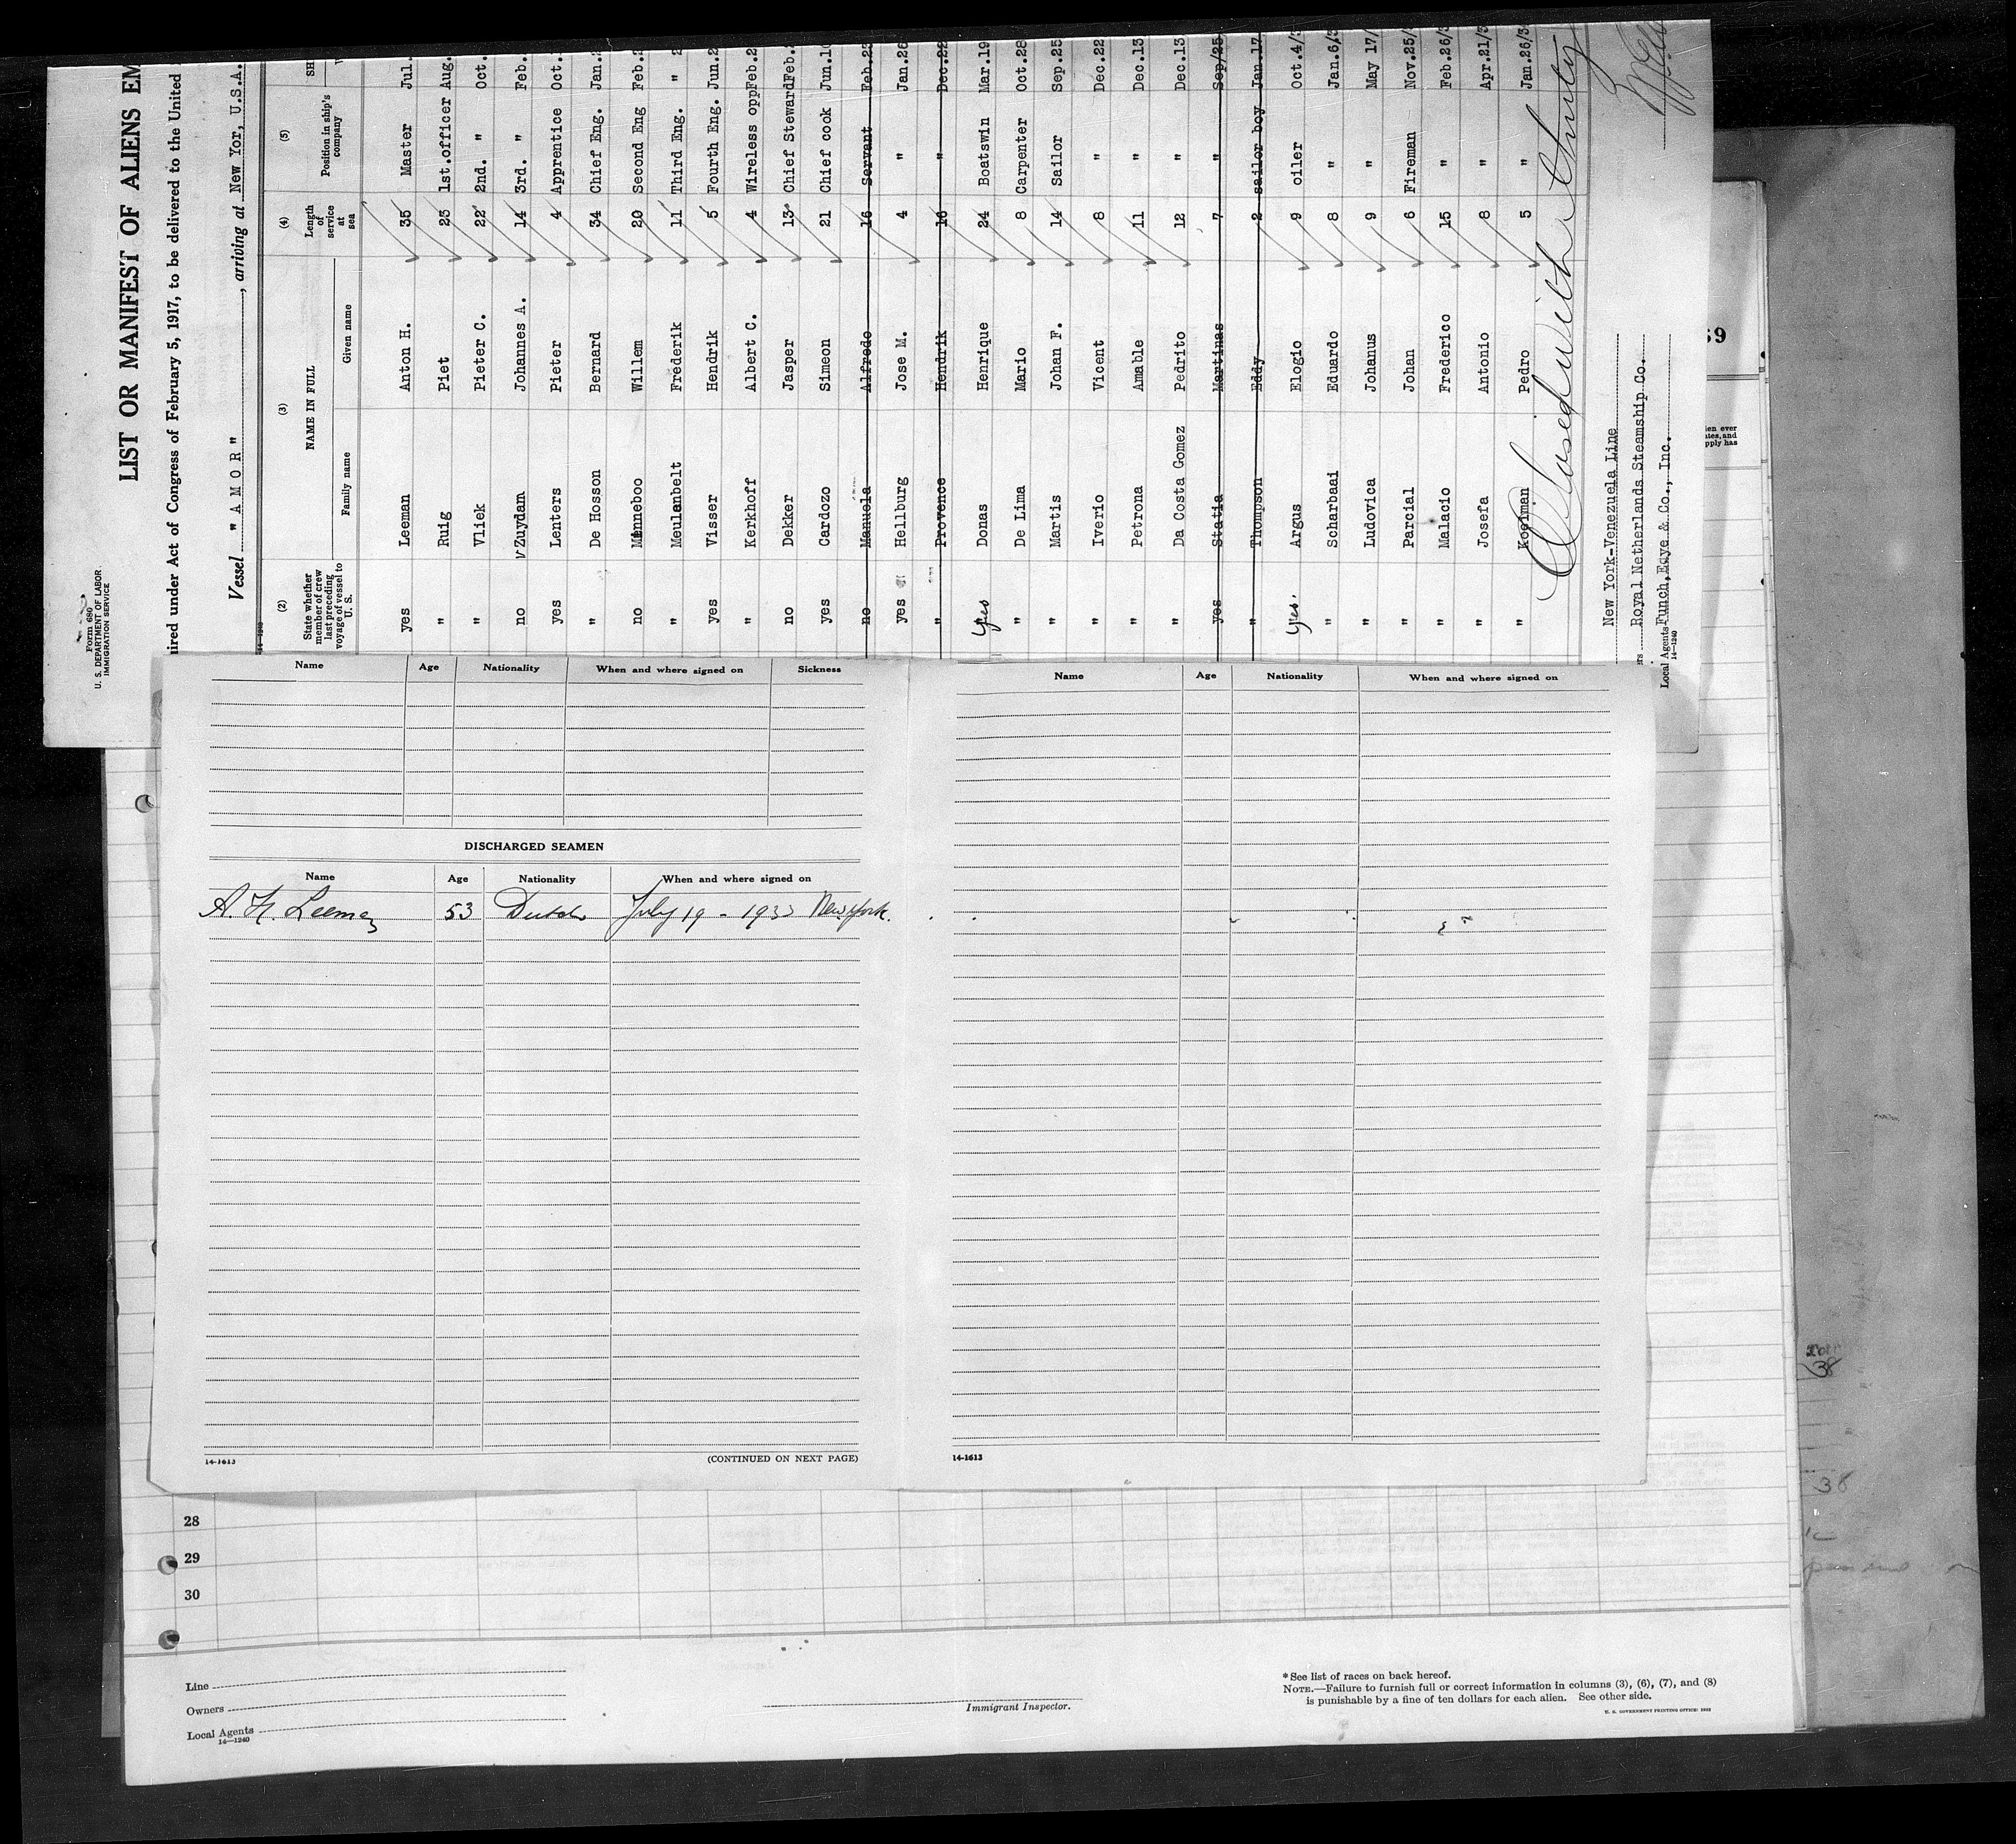 Form 680
U. S. DEPARTMENT OF LABOR
IMMIGRATION SERVICE
LIST OR MANIFEST OF ALIENS EM
ired under Act of Congress of February 5, 1917, to be delivered to the United
Vessel "AMOR", arriving at New Yor, U.S.A.
(2) (3) (4) (5)
State whether member of crew last preceding voyage of vessel to U. S. NAME IN FULL Family name Given name Length of service at sea Position in ship's company
yes Leeman Anton H. 35 Master Jul.
" Ruig Piet 25 1st.officer Aug.
" Vliek Pieter C. 22 2nd. " Oct.
no Zuydam Johannes A. 14 3rd. " Feb.
yes Lenters Pieter 4 Apprentice Oct.
" De Hosson Bernard 34 Chief Eng. Jan.2
no Menneboo Willem 20 Second Eng Feb.2
" Meulenbelt Frederik 11 Third Eng. " 2
yes Visser Hendrik 5 Fourth Eng. Jun.2
" Kerkhoff Albert C. 4 Wireless oppFeb.2
no Dekker Jasper 13 Chief StewardFeb.
yes Cardozo Simeon 21 Chief cook Jun.10
no Manuela Alfredo 16 Servant Feb.23
yes Hellburg Jose M. 4 " Jan.26
" Provence Hendrik 16 " Dec.22
yes Donas Henrique 24 Boatswin Mar.19
" De Lima Mario 8 Carpenter Oct.28
" Martis Johan F. 14 Sailor Sep.25
" Iverio Vicent 8 " Dec.22
" Petrona Amable 11 " Dec.13
" Da Costa Gomez Pedrito 12 " Dec.13
yes Statia Martinas 7 " Sep/25
" Thompson Eddy 2 sailor boy Jan.17
yes. Argus Elogio 9 oiler Oct.4/3
" Scharbaai Eduardo 8 " Jan.6/3
" Ludovica Johanus 9 " May 17/
" Parcial Johan 6 Fireman Nov.25/
" Malacio Frederico 15 " Feb.26/3
" Josefa Antonio 8 " Apr.21/3
" Kooiman Pedro 5 " Jan.26/3
Closed with thirty
New York-Venezuela Line
Royal Netherlands Steamship Co.
Local Agents Funch,Edye & Co., Inc.
14—1240
Name Age Nationality When and where signed on Sickness
DISCHARGED SEAMEN
Name Age Nationality When and where signed on
A. H. Leeman 53 Dutch July 19 - 1933 New York.
14-1613 (CONTINUED ON NEXT PAGE)
Name Age Nationality When and where signed on
14-1613
69
ien ever
ates, and
pply has
38
38
28
29
30
Line
Owners
Local Agents
14—1240
Immigrant Inspector.
* See list of races on back hereof.
NOTE.—Failure to furnish full or correct information in columns (3), (6), (7), and (8)
is punishable by a fine of ten dollars for each alien. See other side.
U. S. GOVERNMENT PRINTING OFFICE: 1932